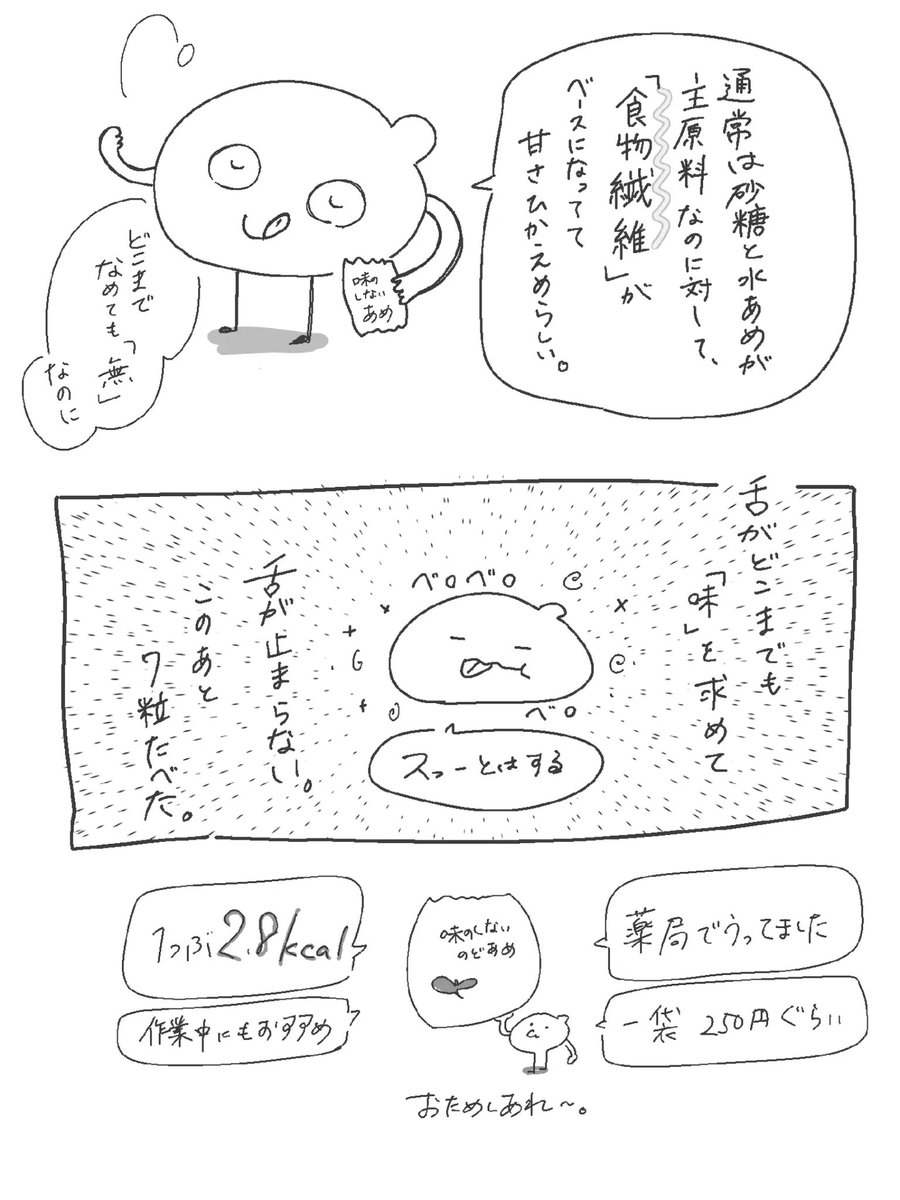 通常は砂糖と水あめが
主原料なのに対して、
「食物繊維」が
ベースになってて
甘さひかえめらしい。
味の
しない
あめ
どこまで
なめても「無」
なのに
舌がどこまでも
「味」を求めて
ベロベロ
ベロ
スゥーとはする
舌が止まらない。
このあと
7粒たべた。
薬局でうってました
一袋 250円ぐらい
味のしない
のどあめ
1つぶ2.8kcal
作業中にもおすすめ
おためしあれ〜。